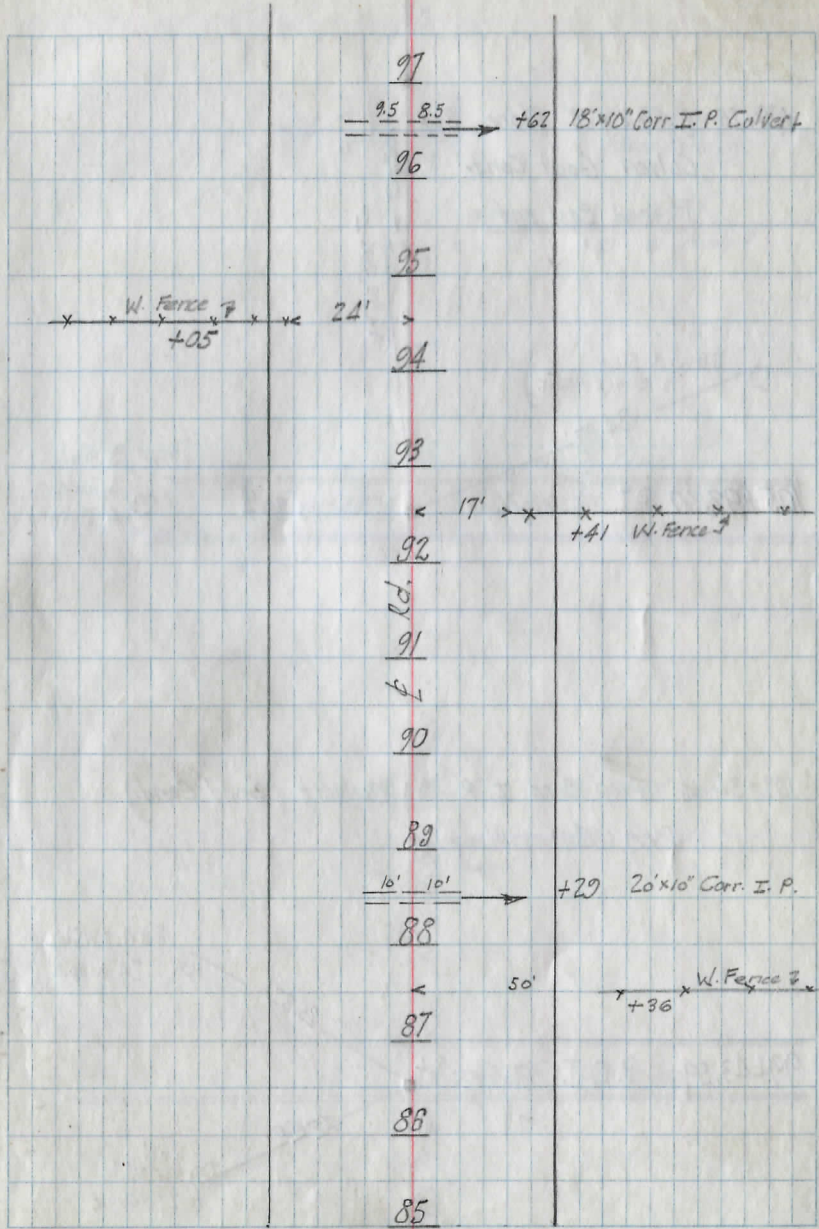 97
9.5 8.5 +62 18'x10" Corr. I. P. Culvert
96
95
W. Fence 24'
+05
94
93
17'
+41 W. Fence
92
Rd.
91
℄
90
89
10' 10' +29 20'x10" Corr. I. P.
88
50' W. Fence
+36
87
86
85